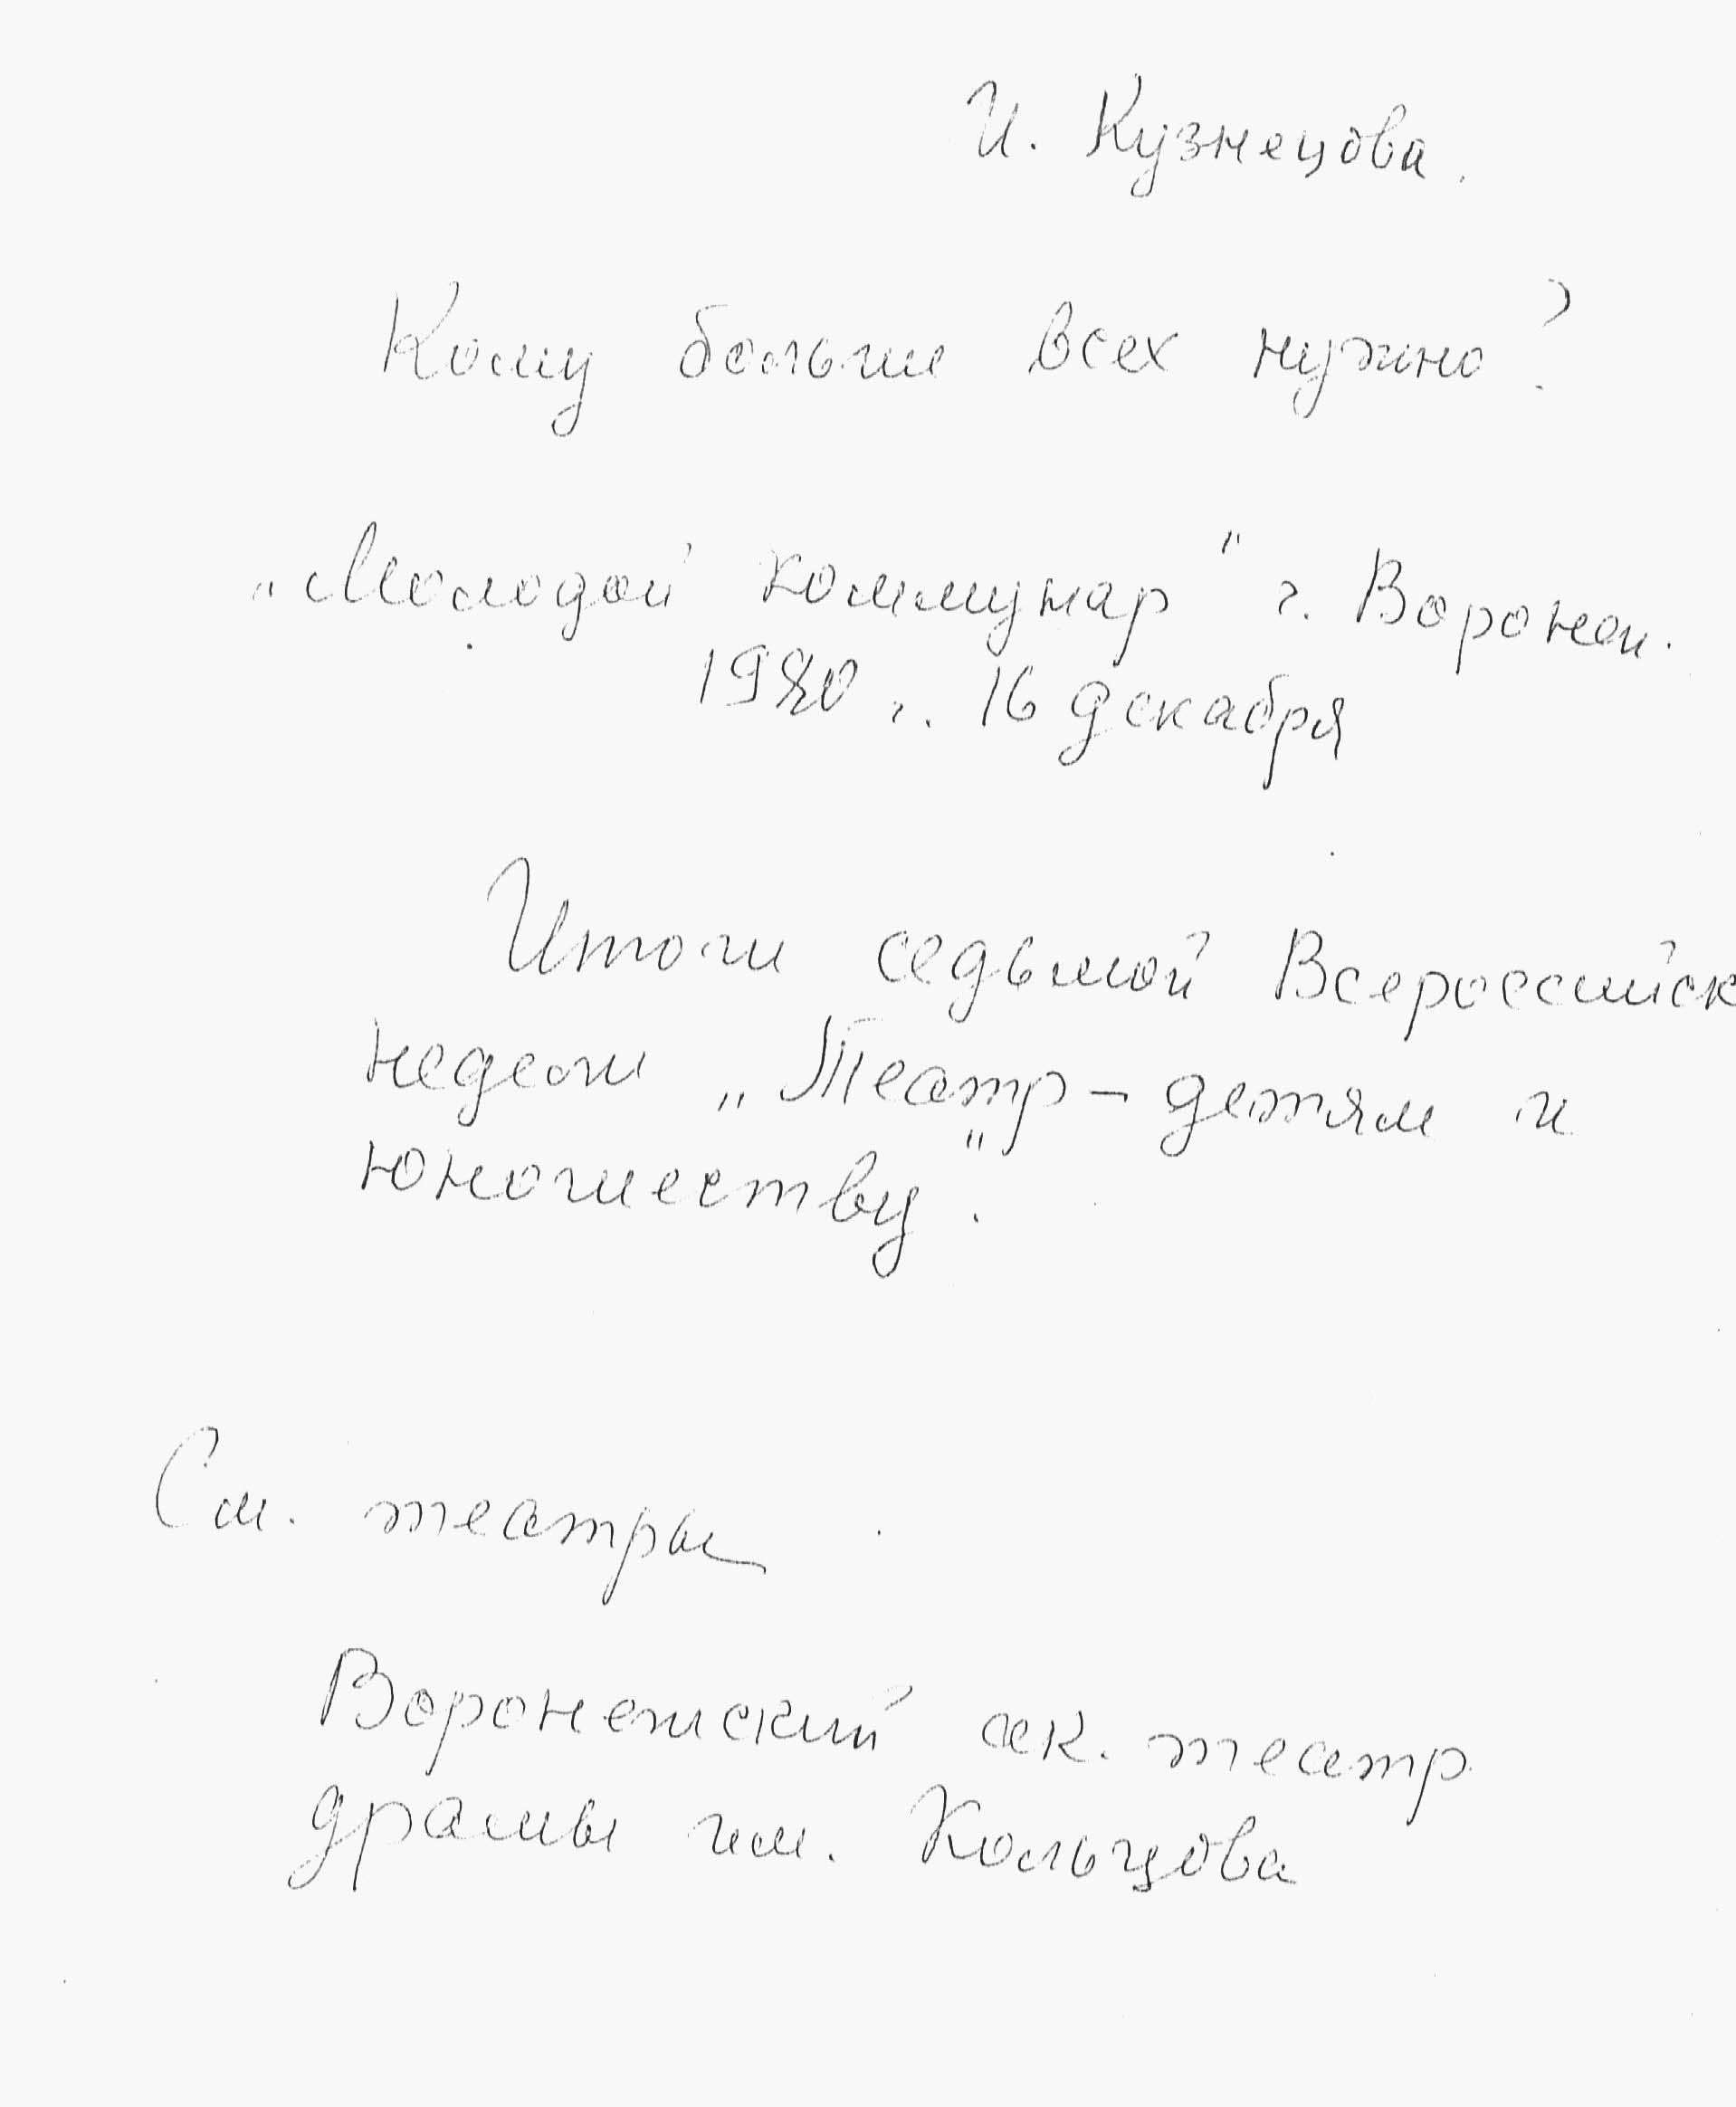 И. Кузнецова.
Кому больше всех нужно?
„Молодой коммунар" г. Воронеж.
1980 г. 16 декабря
Итоги седьмой Всероссийск
недели „Театр - детям и
юношеству".
См. театры
Воронежский ак. театр
драмы им. Кольцова